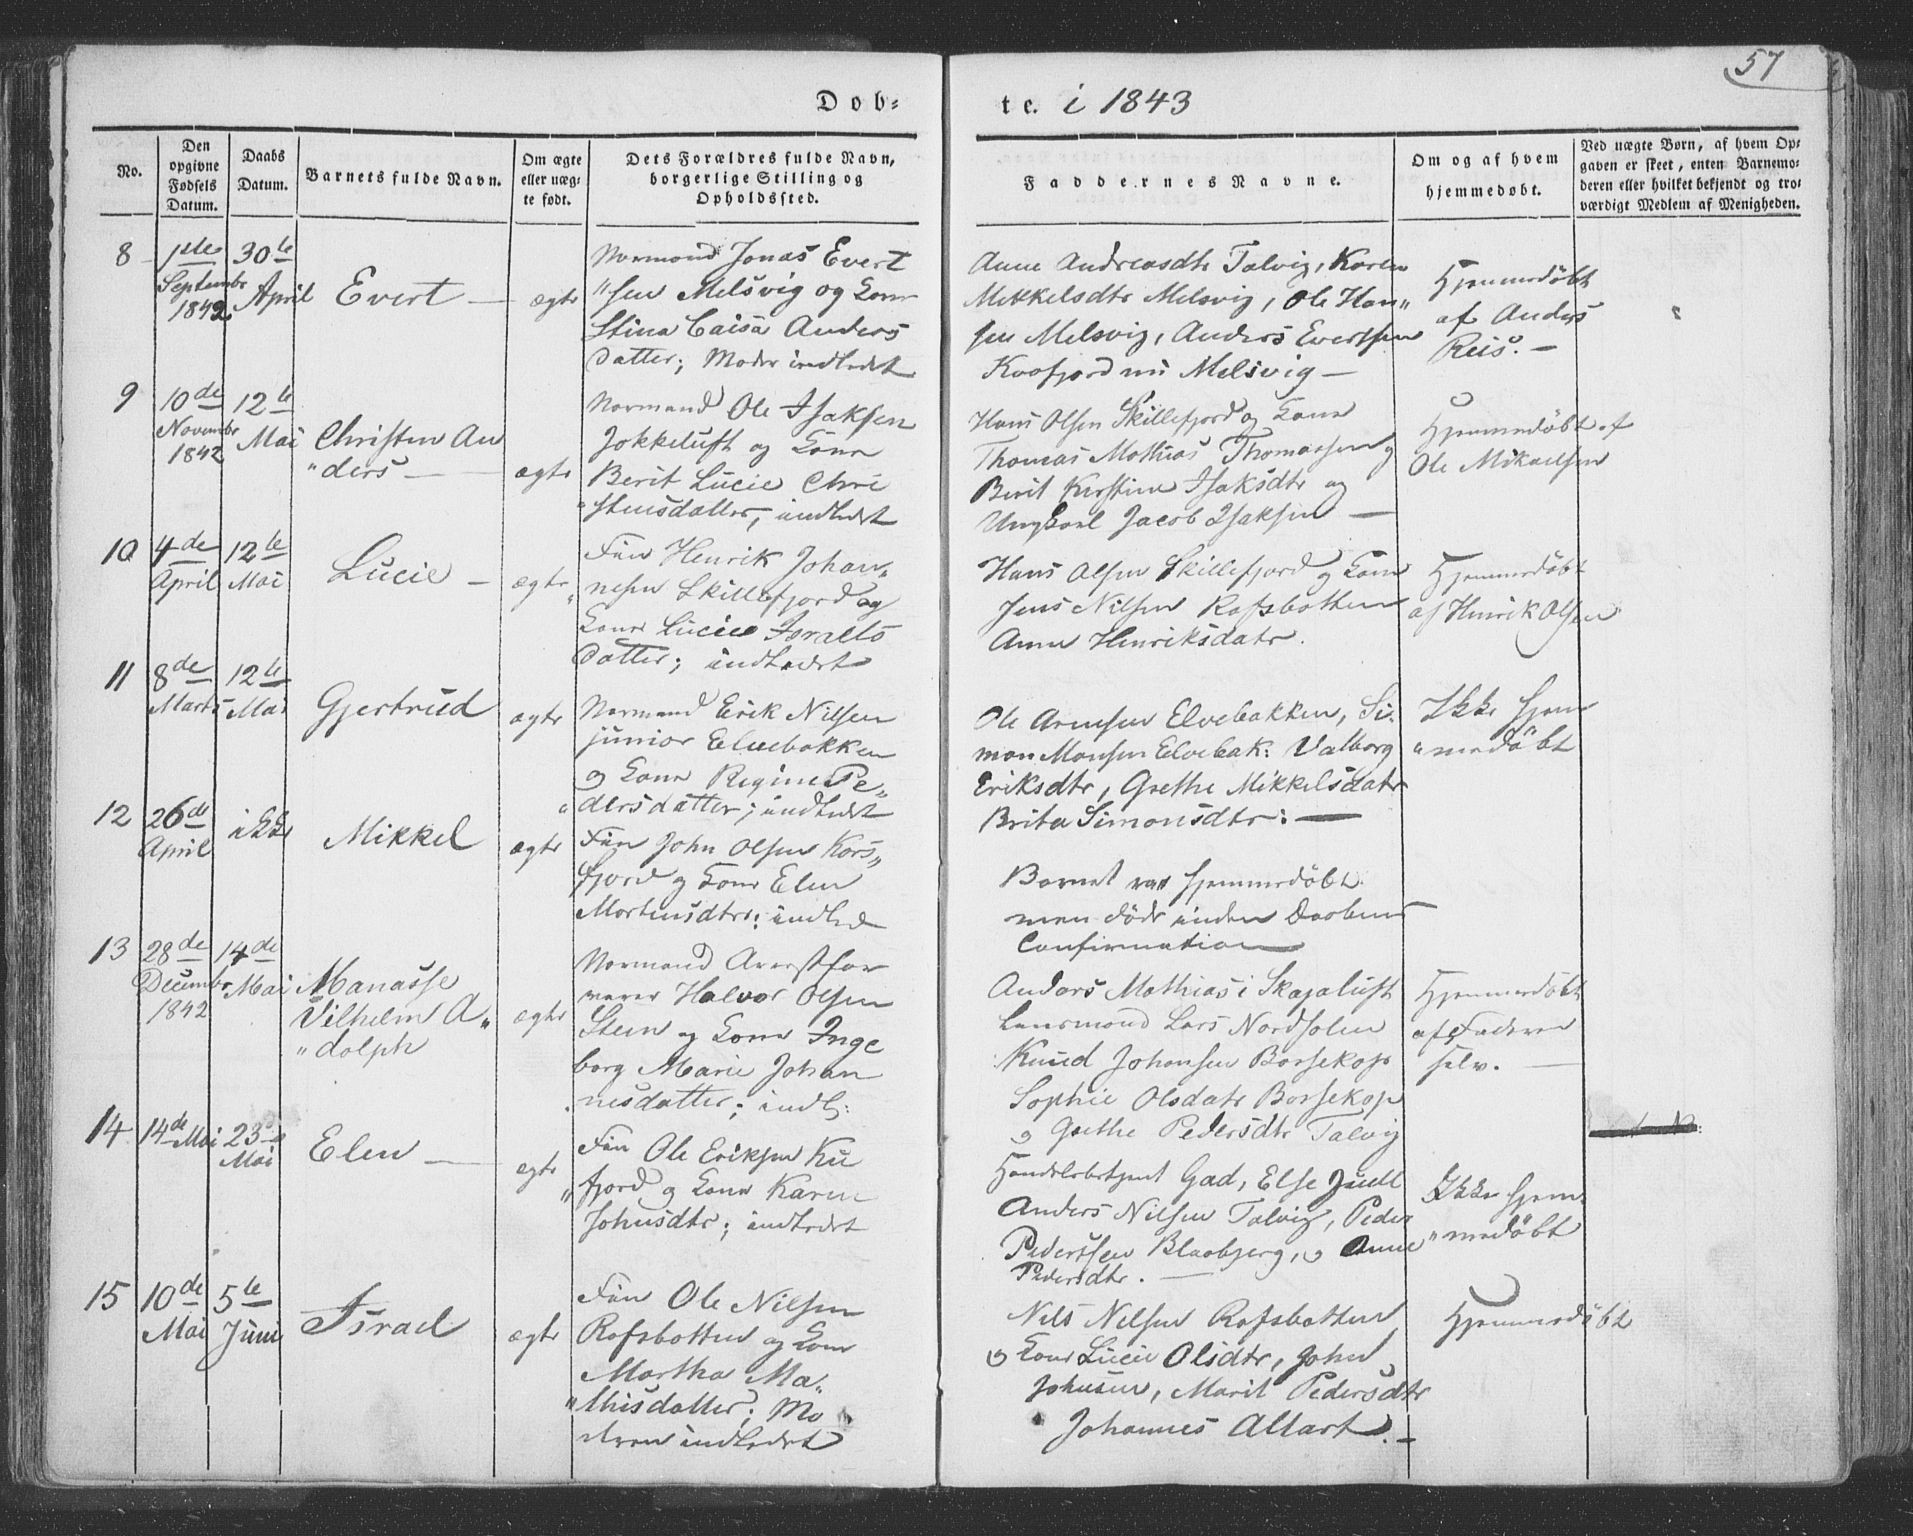 57
Døb-
te. i 1843
No.
Den
opgivne
Fødsels
Datum.
Daabs
Datum.
Barnets fulde Navn.
Om ægte
eller uæg-
te født.
Dets Forældres fulde Navn,
borgerlige Stilling og
Opholdssted.
Faddernes Navne.
Om og af hvem
hjemmedøbt.
Ved uægte Børn, af hvem Op-
gaven er skeet, enten Barnemo-
deren eller hvilket bekjendt og tro-
værdigt Medlem af Menigheden.
8
1ste
Septembr
1842
30te
April
Evert —
ægte
Normand Jonas Evert
"sen Melsvig og Kone
Stina Caisa Anders
Datter; Moder indledet
Anne Andreasdtr Talvig, Karen
Mikkelsdtr Melsvig, Ole Han"
sen Melsvig, Anders Evertsen
Kaafjord nu Melsvig —
Hjemmedøbt
af Anders
Reis. —
9
10de
Novembr
1842
12te
Mai
Christen An
"ders —
ægte
Normand Ole Isaksen
Jokkeluft og Kone
Berit Lucie Chri
"stensdatter, indledet
Hans Olsen Skillefjord og Kone
Thomas Mathias Thomassen og
Berit Kirstine Isaksdtr og
Ungkarl Jacob Isaksen —
Hjemmedøbt af
Ole Mikaelsen
10
4de
April
12te
Mai
Lucie —
ægte
Fin Henrik Johan"
"nesen Skillefjord og
Kone Lucie Israels
Datter; indledet
Hans Olsen Skillefjord og Kone
Jens Nilsen Rafsbotten
Anne Henriksdatr.
Hjemmedøbt
af Henrik Olsen
11
8de
Marts
12te
Mai
Gjertrud
ægte
Normand Erik Nilsen
junior Elvebakken
og Kone Regine Pe"
"dersdatter; indledet
Ole Arnesen Elvebakken, Si-
mon Monsen Elvebak: Valborg
Eriksdtr, Grethe Mikkelsdatr
Brita Simonsdtr: —
Ikke hjem
"medøbt
12
26de
April
ikke
Mikkel
ægte
Fin John Olsen Kors"
fjord og Kone Elen
Mortensdtr: indled
Barnet var hjemmedøbt
men døde inden Daabens
Confirmation
13
28de
Decembr
1842
14de
Mai
Manasse
Vilhelm A"
"dolph
ægte
Normand Arrestfor
varer Halvor Olsen
Stein og Kone Inge
borg Marie Johan
nesdatter; indl:
Anders Mathias i Skajaluft
Lensmand Lars Nordholm
Knud Johansen Bossekop
Sophie Olsdatr Bossekop
og Grethe Pedersdtr Talvig
Hjemmedøbt
af Faderen
selv. —
14
14de Mai
23de
Mai
Elen —
ægte
Fin Ole Eriksen Ku
"fjord og Kone Karen
Johnsdtr; indledet
Handelsbetjent Gad, Else Juell
Anders Nilsen Talvig, Peder
Pederssen Blaabjerg, og Anne
Pedersdtr. —
Ikke hjem-
"medøbt
15
10de
Mai
5te
Juni
Israel
ægte
Fin Ole Nilsen
Rafsbotten og Kone
Martha Ma"
"thisdatter; Mo
deren indledet
Nils Nilsen Rafsbotten
og Kone Lucie Olsdtr, John
Johnsen, Marit Pedersdtr
Johannes Altart. —
Hjemmedøbt